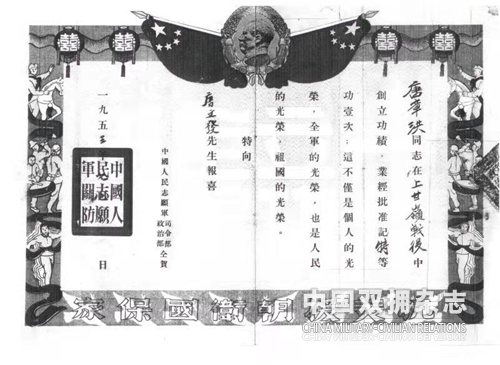 唐章洪同志在上甘嶺戰役中
創立功績，業經批准記特等
功壹次：這不僅是個人的光
榮，全軍的光榮，也是人民
的光榮，祖國的光榮。
特向
唐立發先生報喜
中國人民志願軍司令部
政治部仝賀
一九五三年 日
中國人
民志願
軍關防
抗美援朝衛國保家
中国双拥杂志
CHINA MILITARY-CIVILIAN RELATIONS